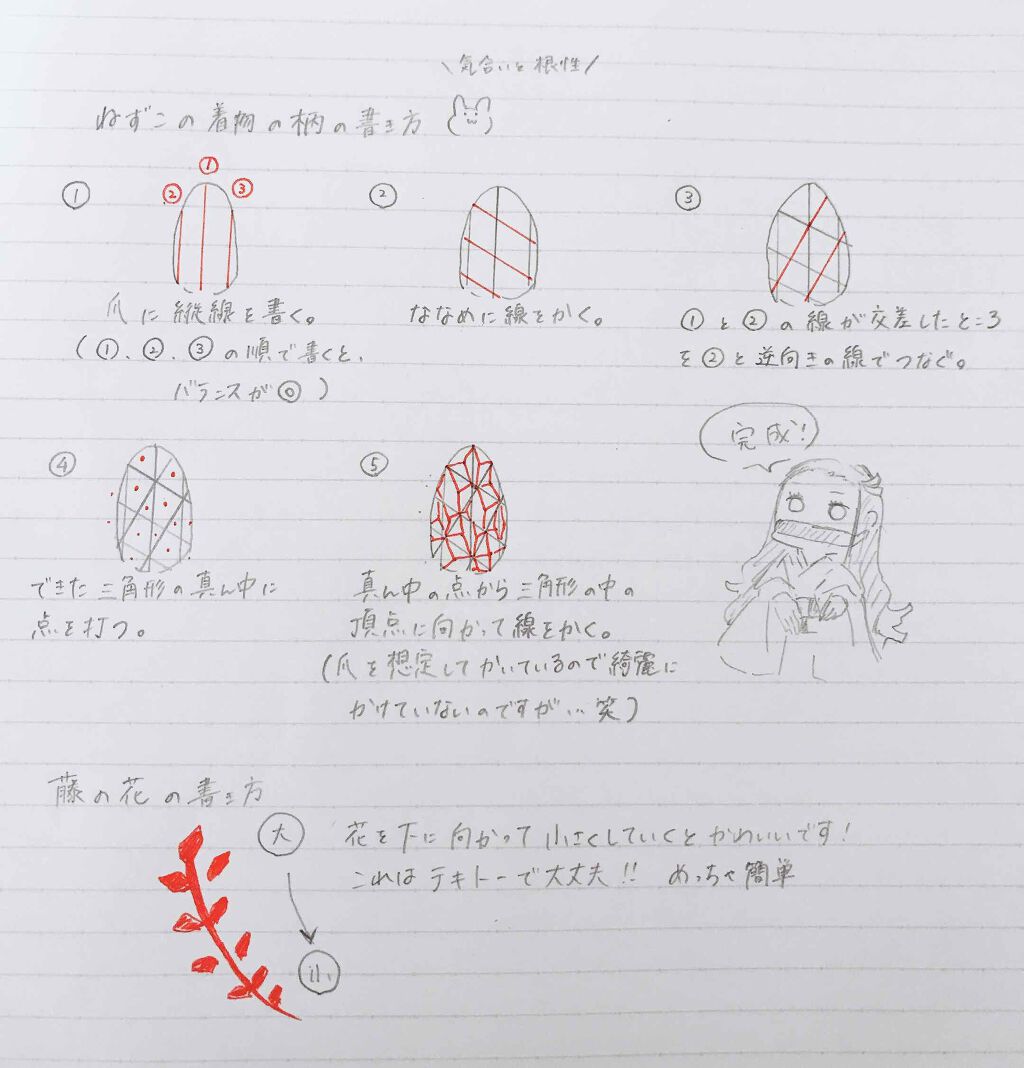 \気合いと根性/
ねずこの着物の柄の書き方
① ② ③
① ② ③
爪に縦線を書く。
(①、②、③の順で書くと、
バランスが◎)
ななめに線をかく。
①と②の線が交差したところ
を②と逆向きの線でつなぐ。
④ ⑤
完成!
できた三角形の真ん中に
点を打つ。
真ん中の点から三角形の中の
頂点に向かって線をかく。
(爪を想定してかいているので綺麗に
かけていないのですが…笑)
藤の花の書き方
大
花を下に向かって小さくしていくとかわいいです!
これはテキトーで大丈夫!! めっちゃ簡単
小